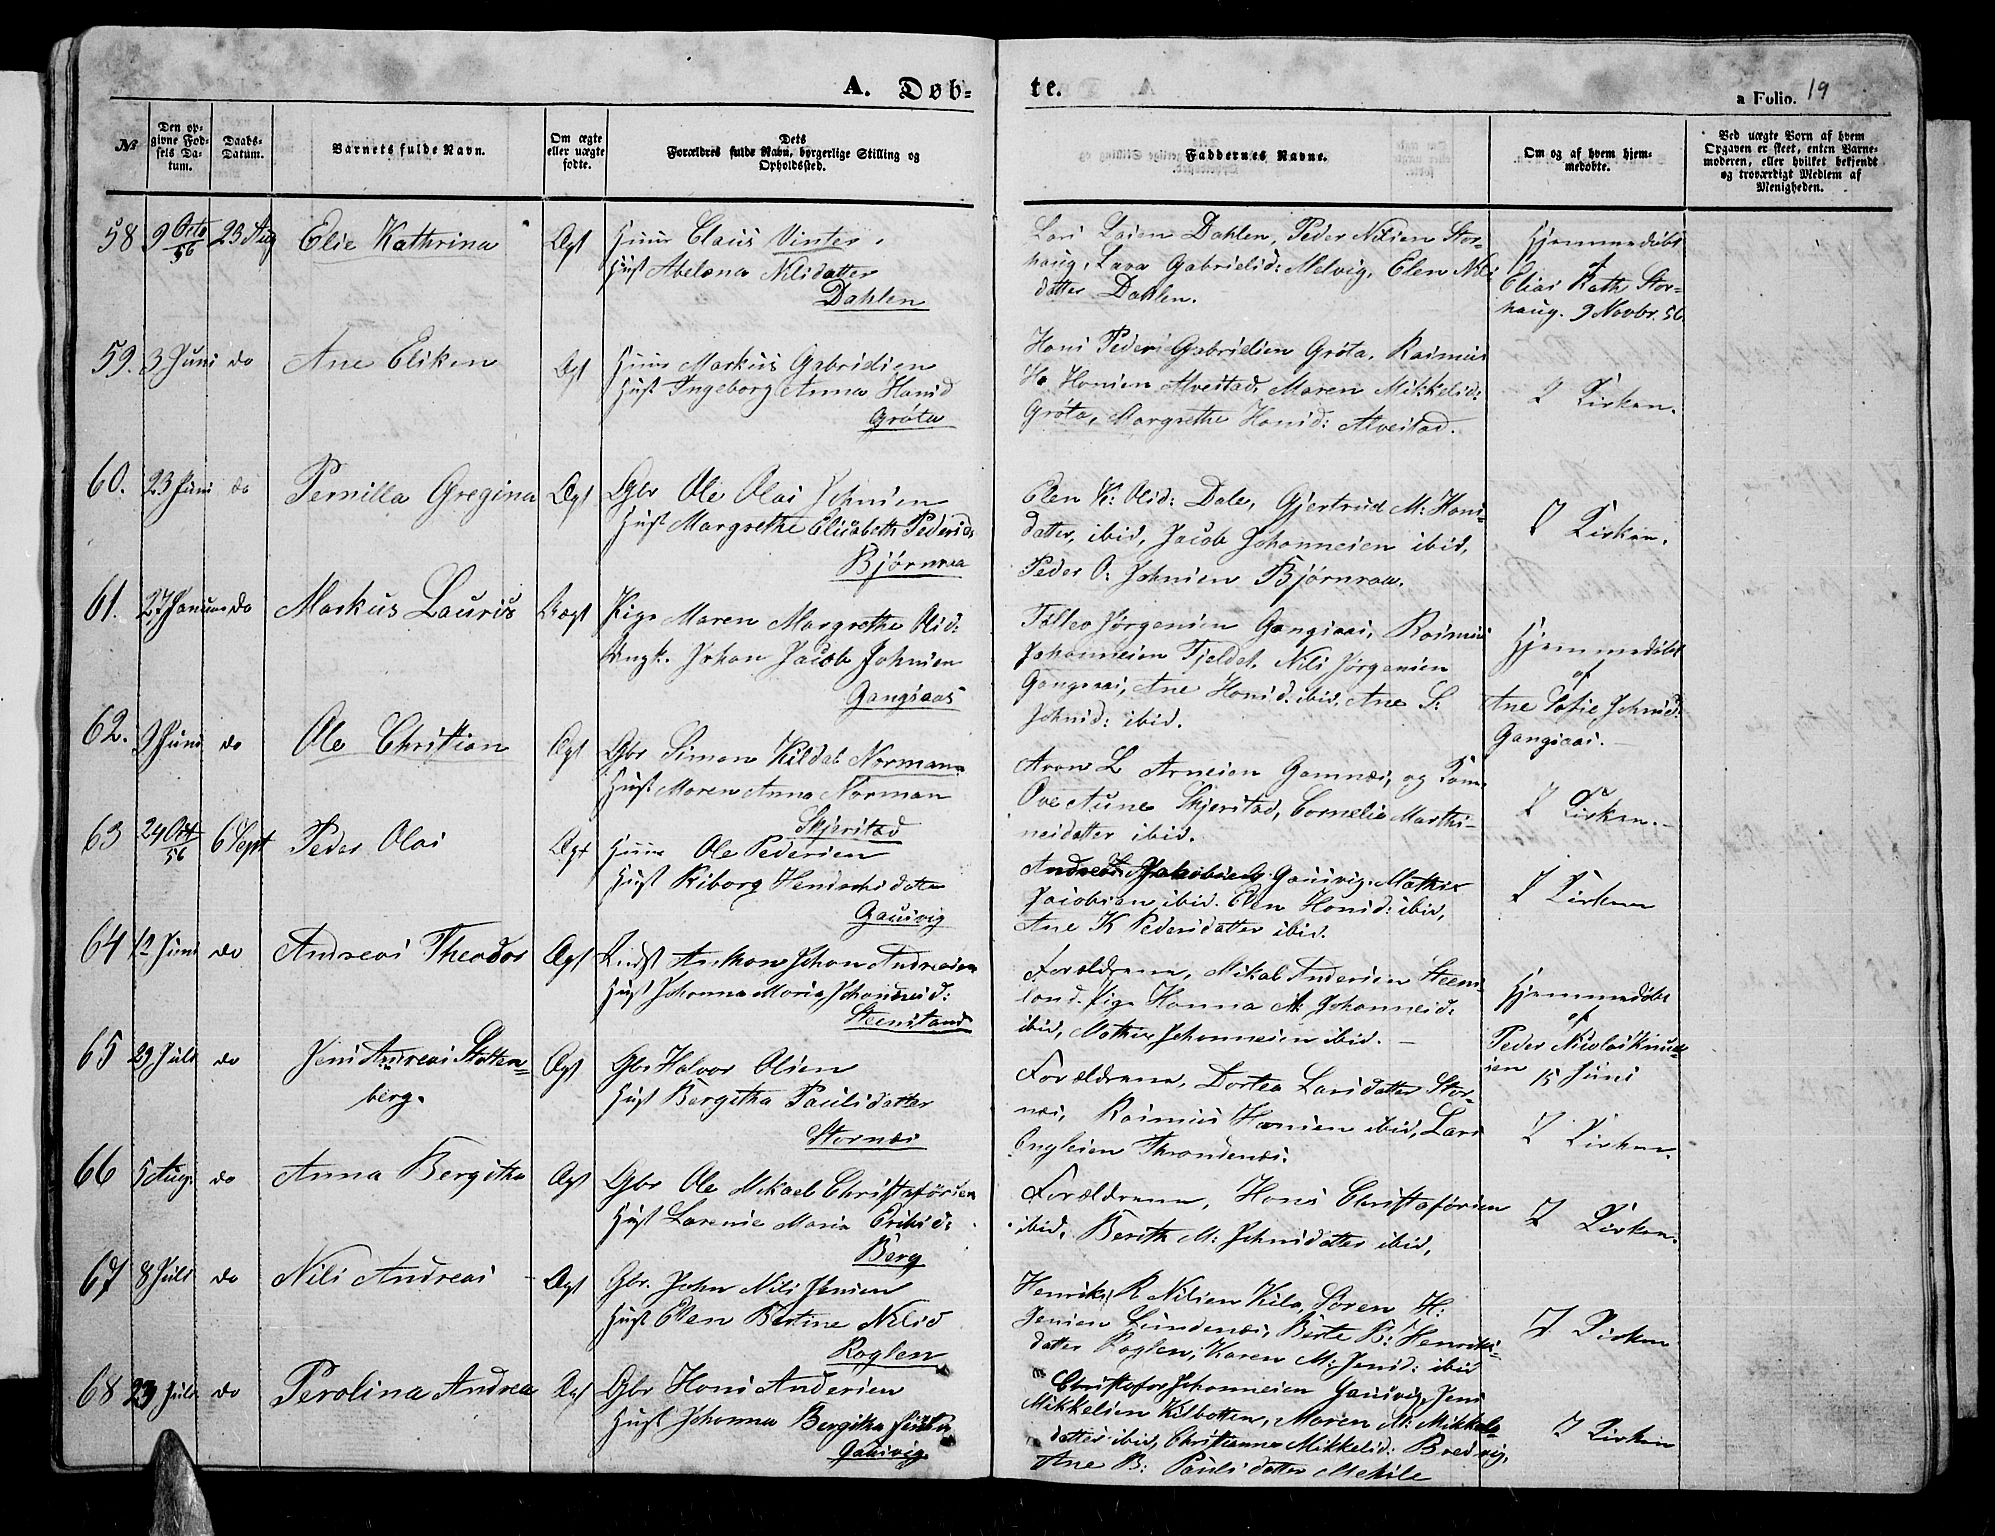 A. Døb-
te.
a Folio. 19
№
Den op-
givne Fød-
sels Da-
tum.
Daabs-
Datum.
Barnets fulde Navn.
Om ægte
eller uægte
fødte.
Dets
Forældres fulde Navn, borgerlige Stilling og
Opholdssted.
Faddernes Navne.
Om og af hvem hjem-
medøbte.
Ved uægte Børn af hvem
Opgaven er skeet, enten Barne-
moderen, eller hvilket bekjendt
og troværdigt Medlem af
Menigheden.
58 9 Octo 56 23 Aug Elie Kathrina Ægt Huus Claus Vinter
Hust Abelona Nilsdatter
Dahlen
Lars Dahlen, Peder Nilsen Stor-
haug, Lava Gabrielsd: Melvig, Elen Nils
datter Dahlen.
Hjemmedøbt
af
Elias Kath Stor-
haug. 9 Novbr. 56.
59. 3 Juni do Ane Eliken Ægt Huus Markus Gabrielsen
Hust Ingeborg Anna Hansd
Grøta
Hans Peder Gabrielsen Grøta, Rasmus
H. Hansen Alvestad, Maren Mikkelsd:
Grøta, Margrethe Hansd: Alvestad.
I Kirken.
60. 23 Juni do Pernilla Gregina Ægt Gbr Ole Olai Johnsen
Hust Margrethe Elisabeth Pedersd.
Bjørnraa
Elen K: Olsd: Dale, Gjertrud M: Hans-
datter, ibid, Jacob Johannesen ibid,
Peder O: Johnsen Bjørnraa.
I Kirken.
61. 27 Januar do Markus Laurits Uægt Pige Maren Margrethe Olsd:
Ungk. Johan Jacob Johnsen
Gangsaas
Tollev Jørgensen Gangsaas, Rasmus
Johannesen Tjeldet, Nils Jørgensen
Gangsaas, Ane Hansd: ibid, Ane S:
Johnsd: ibid.
Hjemmedøbt
af
Ane Sofie Johnsd:
Gangsaas.
62. 9 Juni do Ole Christian Ægt Gbr Simon Kildal Norman
Hust Maren Anna Norman
Skjerstad
Aron L Arnesen Gamnæs, og
Ove Aune Skjerstad, Cornelia Marthi-
nesdatter ibid.
I Kirken.
63 24 Oct 56 6 Sept Peder Olai Ægt Huus Ole Pedersen
Hust Kiborg Hendrichsdatter
Gausvig
Gausvig. Mathis
Jacobsen ibid. Elen Hansd: ibid,
Ane K Pedersdatter ibid.
I Kirken
64 12 Juni do Andreas Theodor Ægt Anthon Johan Andreasen
Hust Johanna Maria Johannesd:
Steensland
Forældrene, Mikal Andersen Steens-
land. Pige Hanna M Johannesd.
ibid, Mathis Johannesen ibid.
Hjemmedøbt
af
Peder Nicolai Knud-
sen 15 Juni
65 29 Juli do Jens Andreas Stolten-
berg.
Ægt Gbr Halvor Olsen
Hust Bergitha Paulsdatter
Stornæs
Forældrene, Dortea Larsdatter Stor-
næs, Rasmus Hansen ibid, Lars
Engelsen Throndenæs.
I Kirken.
66 5 Aug. do Anna Bergitha Ægt Gbr Ole Mikael Christoforsen
Hust Larensie Maria Eriksd:
Berg
Forældrene, Hans Christoforsen
ibid, Berith M: Johnsdatter ibid,
I Kirken.
67 8 Juli do Nils Andreas Ægt Gbr. John Nils Jensen
Hust Ellen Bertine Nilsd
Roglen
Henrik R Nilsen Kila, Søren H:
Jensen Lundenæs, Berte B: Henriks-
datter Roglen, Karen M: Jensd: ibid
I Kirken
68 23 Juli do Perolina Andrea Ægt Gbr Hans Andersen
Hust Johanna Bergitha
Gausvig
Christofor Johannesen Gausvig, Jens
Mikkelsen Kilbotten, Maren M: Mikkels-
datter ibid, Christianna Mikkelsd: Bredvig,
Ane B: Paulsdatter Melile
I Kirken